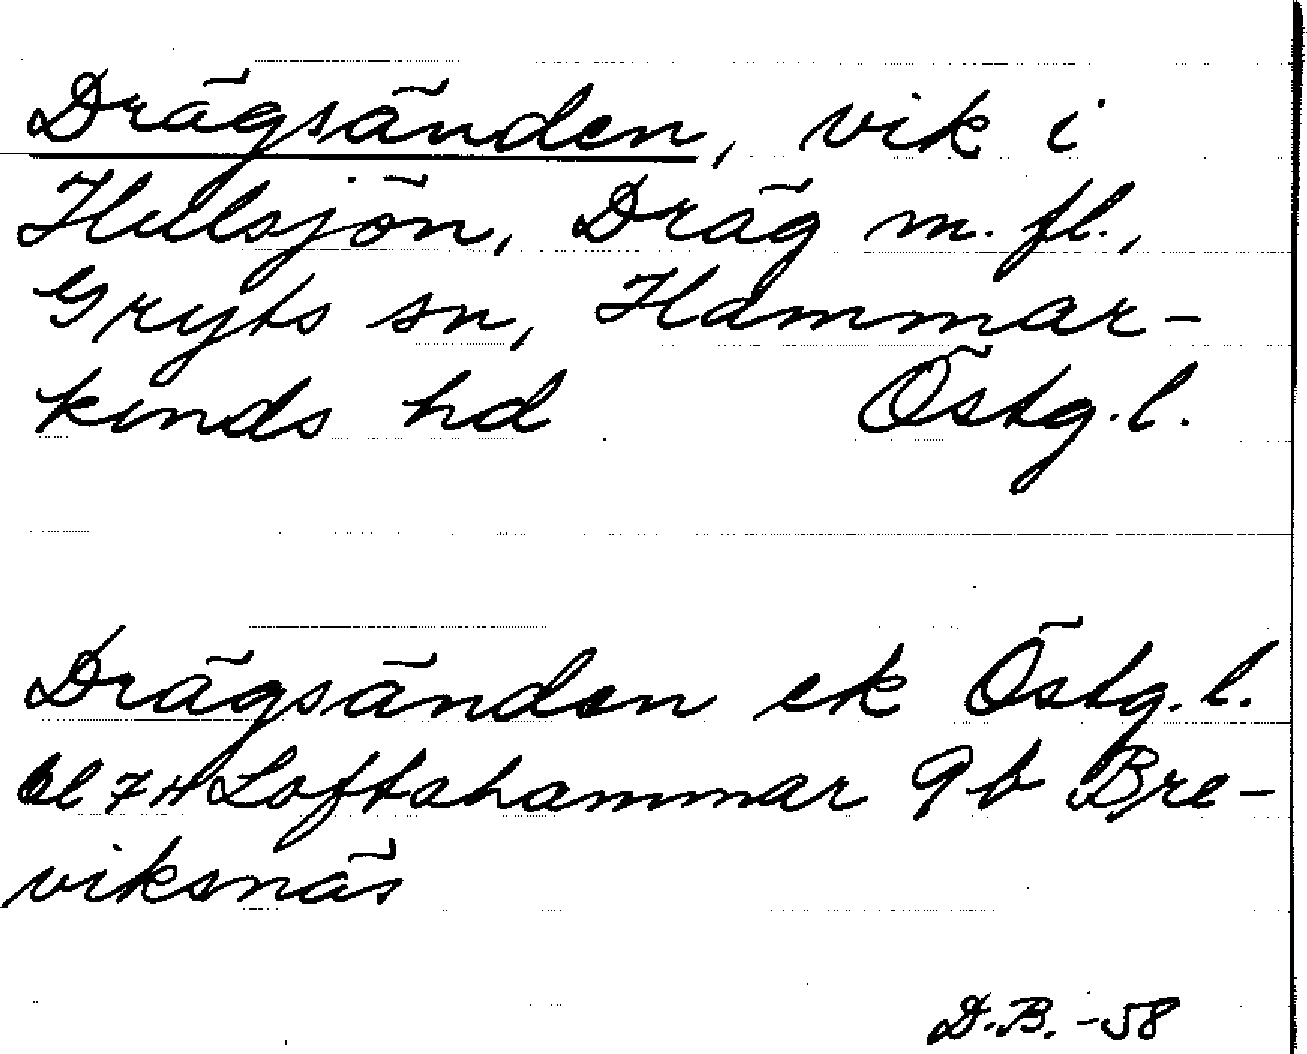 Drägsänden, vik i
Hulsjön, Dräg m. fl.,
Gryts sn, Hammar-
kinds hd Östg. l.
Drägsänden ek Östg. l.
bl 7H Loftahammar 9b Bre-
viksnäs
D.B. -58